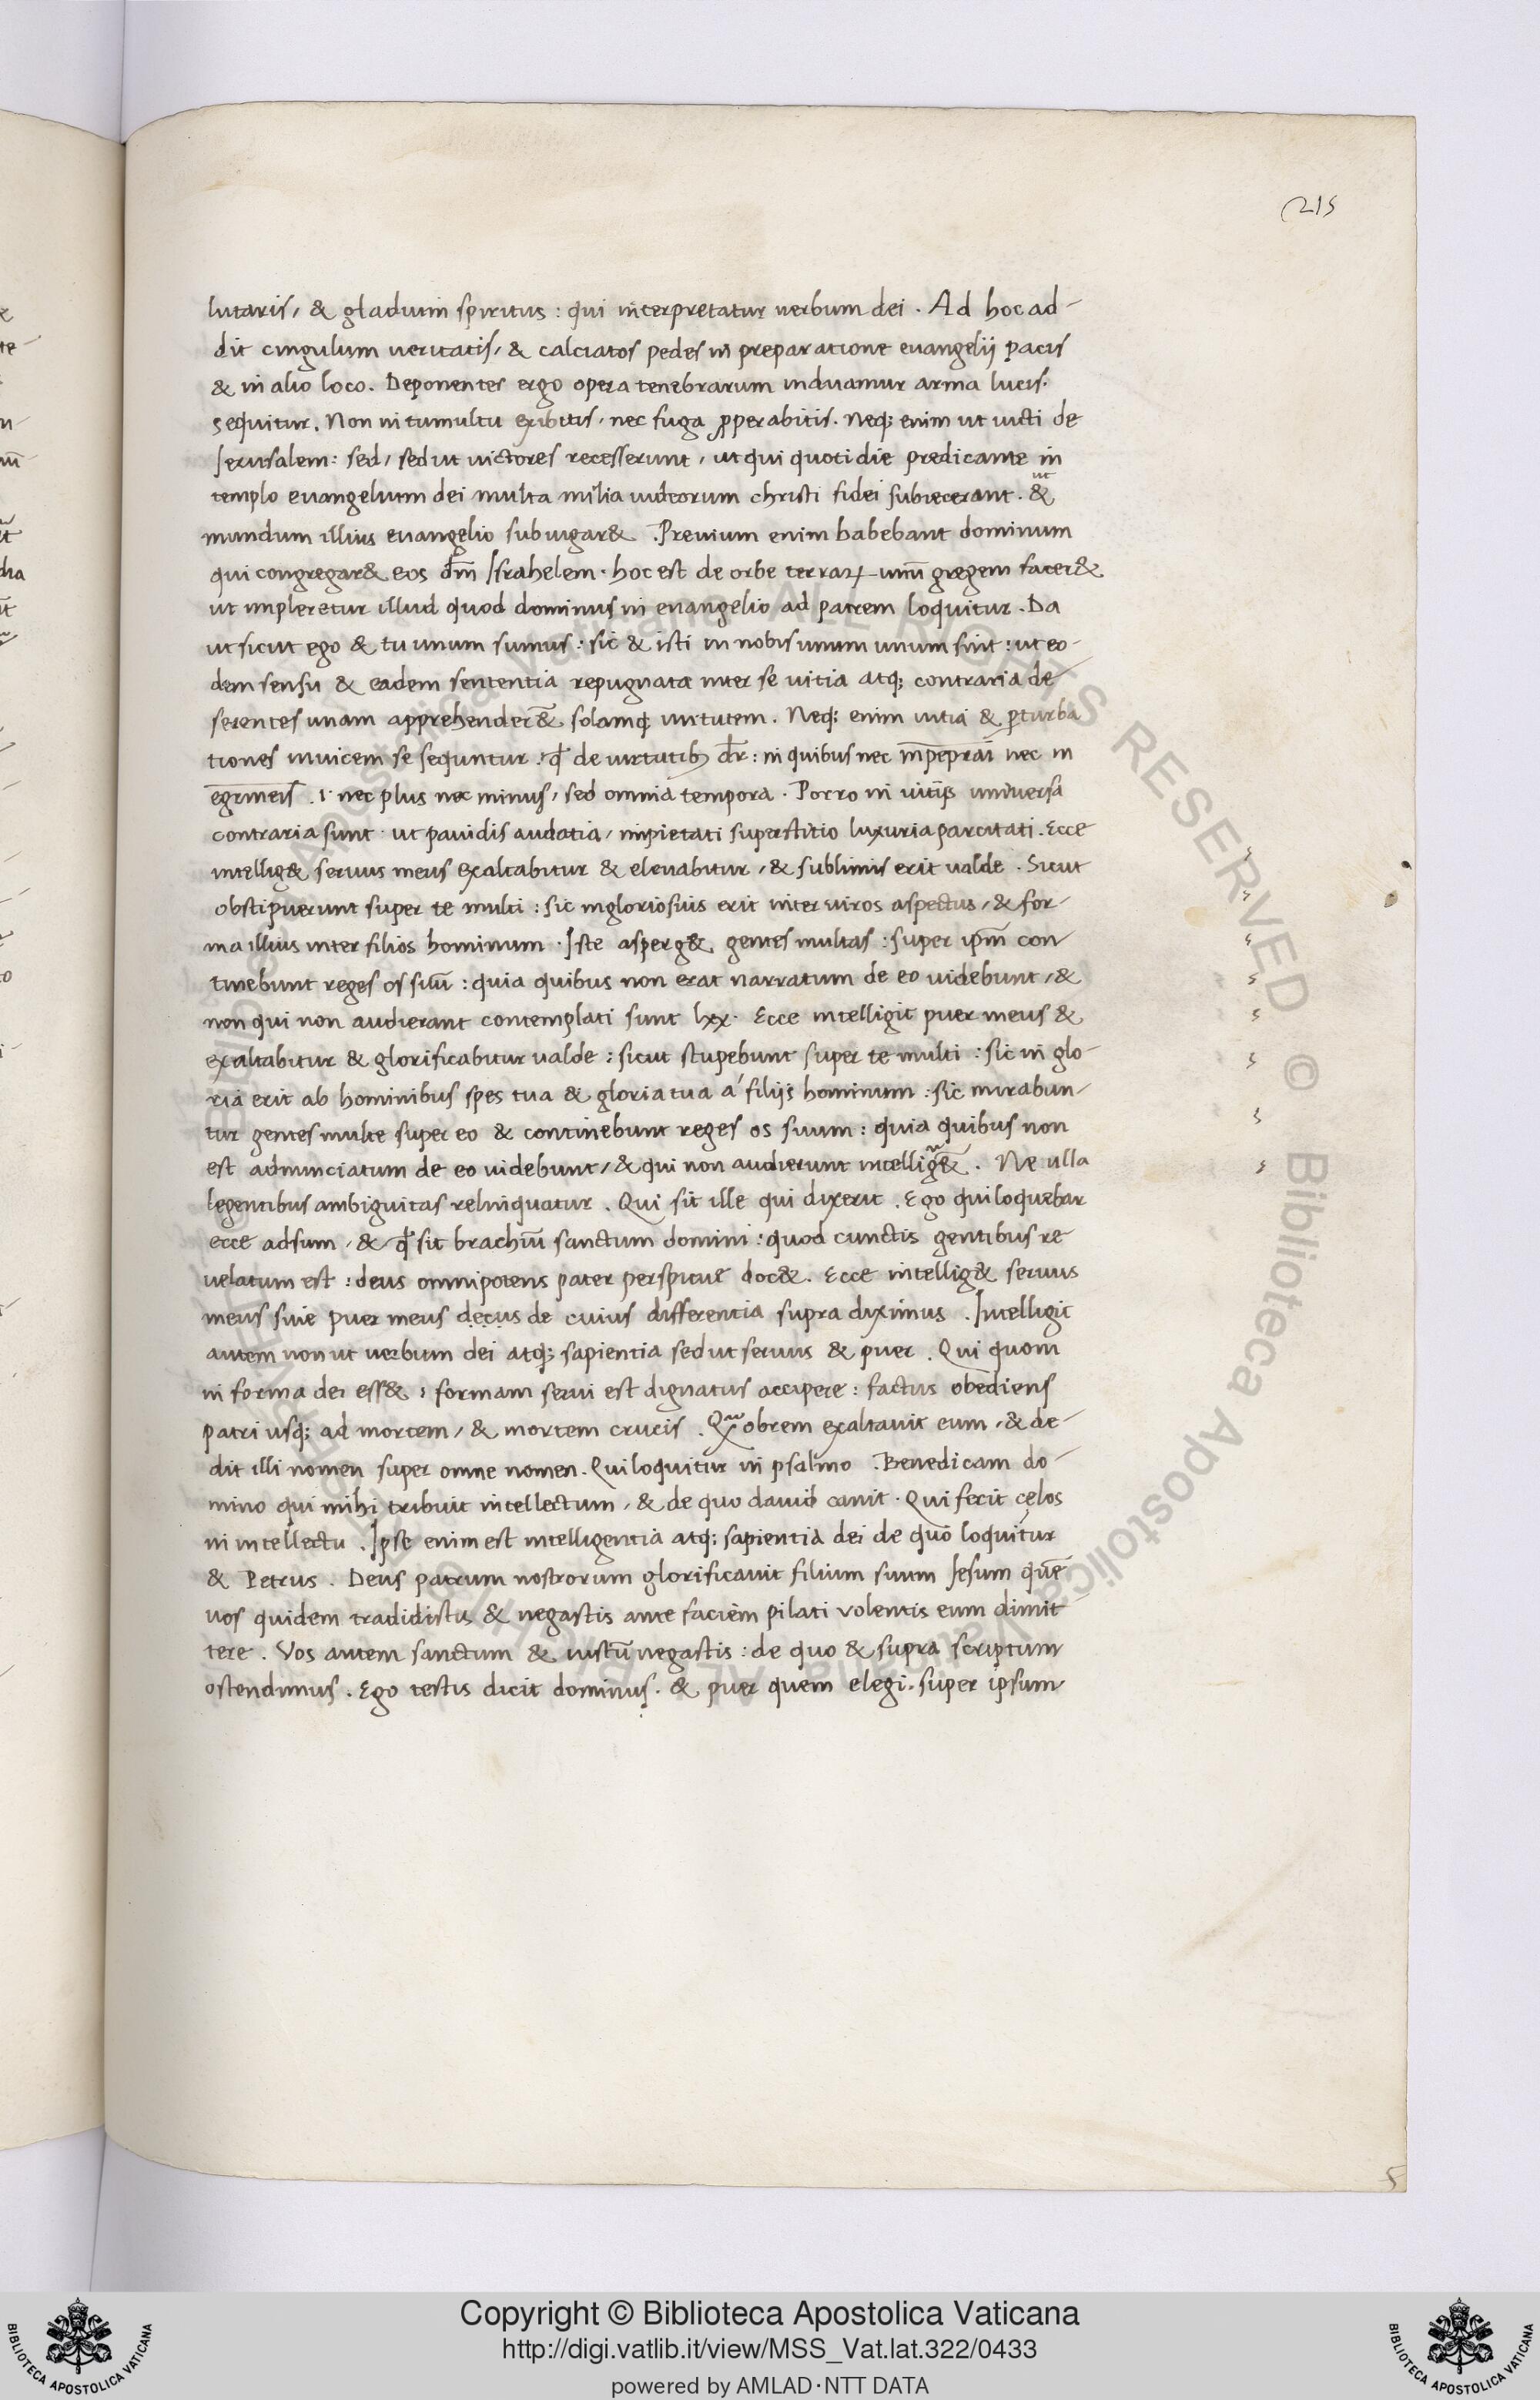 215
lutaris, & gladium spiritus : qui interpretatur uerbum dei . Ad hoc ad-
dit cingulum ueritatis, & calciatos pedes in preparatione euangelij pacis
& in alio loco . Deponentes ergo opera tenebrarum induamur arma lucis.
sequitur. Non in tumultu exibitis, nec fuga ꝓperabitis. Neq; enim ut uicti de
Jerusalem: sed, sed ut uictores recesserunt, ut qui quotidie predicante in
templo euangelium dei multa milia iudeorum christi fidei subiecerant . &
ut
mundum illius euangelio subiugar& . Preuium enim habebant dominum
qui congregar& eos dm̄ Israhelem . hoc est de orbe terraꝝ unū gregem facer&
ut impleretur illud quod dominus in euangelio ad patrem loquitur . Da
ut sicut ego & tu unum sumus : sic & isti in nobis unum unum sint : ut eo-
dem sensu & eadem sententia repugnata inter se uitia atq; contraria de-
serentes unam apprehender&̄ solamq; uirtutem . Neq; enim uitia & ꝑturba
tiones inuicem se sequntur . qđ de uirtutib; dr̄ : in quibus nec nec in
.i. nec plus nec minus, sed omnia tempora . Porro in uitijs uniuersa
contraria sunt . ut pauidis audatia, impietati superstitio luxuria parcitati . Ecce
intellig& seruus meus exaltabitur & eleuabitur, & sublimis erit ualde . Sicut
obstipuerunt super te multi : sic ingloriosus erit inter uiros aspectus, & for-
ma illius inter filios hominum . Iste asperg& gentes multas : super ipm̄ con
tinebunt reges os suū : quia quibus non erat narratum de eo uidebunt, &
non qui non audierant contemplati sunt lxx. Ecce intelligit puer meus &
exaltabitur & glorificabitur ualde : sicut stupebunt super te multi : sic in glo-
ria erit ab hominibus spes tua & gloria tua á filijs hominum : sic mirabun-
tur gentes multe super eo & continebunt reges os suum : quia quibus non
est adnunciatum de eo uidebunt, & qui non audierunt intellig&̄ . Ne ulla
legentibus ambiguitas relinquatur . Qui sit ille qui dixerit . Ego qui loquebar
ecce adsum, & qđ sit brachiū sanctum domini : quod cunctis gentibus re
uelatum est : deus omnipotens pater perspicue doc& . Ecce intellig& seruus
meus siue puer meus decus de cuius differentia supra diximus . Intelligit
autem non ut uerbum dei atq; sapientia sed ut seruus & puer . Qui quom
in forma dei ess& : formam serui est dignatus accipere : factus obediens
patri usq; ad mortem, & mortem crucis . Qobrem exaltauit eum, & de-
dit illi nomen super omne nomen . Qui loquitur in psalmo . Benedicam do-
mino qui mihi tribuit intellectum, & de quo dauid canit . Qui fecit cęlos
in intellectu . Ipse enim est intelligentia atq; sapientia dei de quo loquitur
& Petrus . Deus patrum nostrorum glorificauit filium suum Jesum quē
uos quidem tradidistis & negastis ante faciem pilati volentis eum dimit
tere . Vos autem sanctum & iustū negastis : de quo & supra scriptum
ostendimus . Ego testis dicit dominus . & puer quem elegi . super ipsum
Copyright © Biblioteca Apostolica Vaticana
http://digi.vatlib.it/view/MSS_Vat.lat.322/0433
powered by AMLAD·NTT DATA
BIBLIOTECA APOSTOLICA VATICANA
BIBLIOTECA APOSTOLICA VATICANA